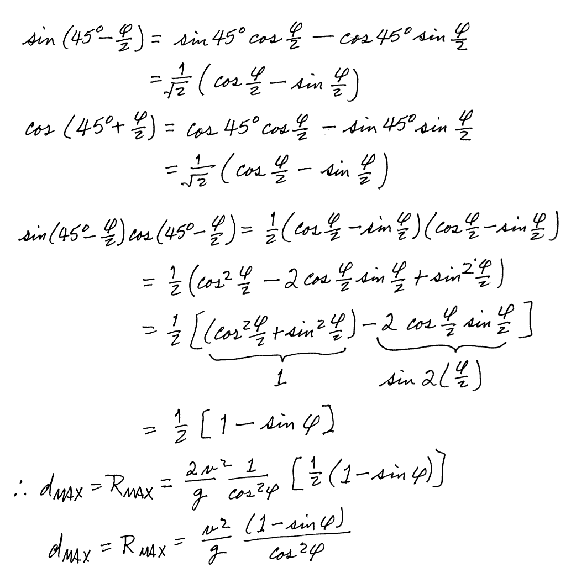 sin (45° - φ/2) = sin 45° cos φ/2 - cos 45° sin φ/2
= 1/√2 (cos φ/2 - sin φ/2)
cos (45° + φ/2) = cos 45° cos φ/2 - sin 45° sin φ/2
= 1/√2 (cos φ/2 - sin φ/2)
sin (45° - φ/2) cos (45° - φ/2) = 1/2 (cos φ/2 - sin φ/2) (cos φ/2 - sin φ/2)
= 1/2 (cos² φ/2 - 2 cos φ/2 sin φ/2 + sin² φ/2)
= 1/2 [(cos² φ/2 + sin² φ/2) - 2 cos φ/2 sin φ/2]
1 sin 2(φ/2)
= 1/2 [1 - sin φ]
∴ dMAX = RMAX = 2v²/g 1/cos²φ [1/2 (1 - sin φ)]
dMAX = RMAX = v²/g (1 - sin φ)/cos²φ